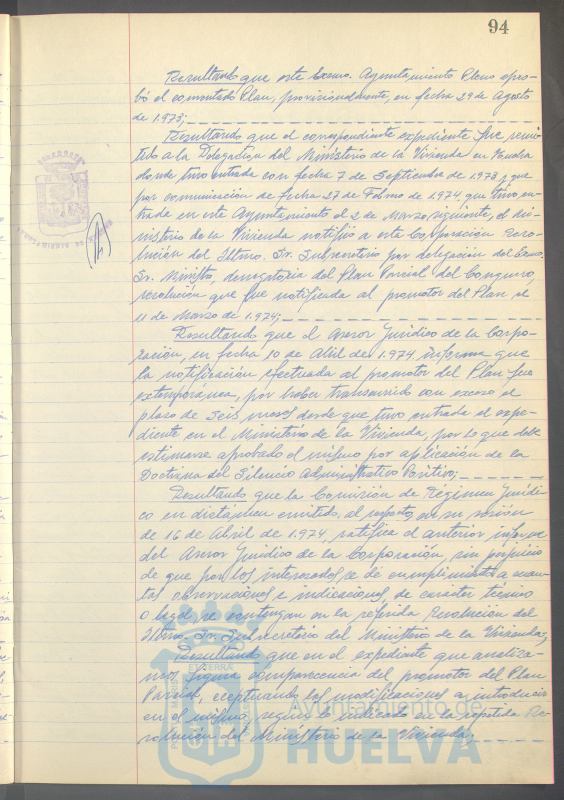 94
Resultando que este Excmo. Ayuntamiento Pleno apro-
bó el comentado Plan, provisionalmente, en fecha 29 de Agosto
de 1.973;
Resultando que el correspondiente expediente fue remi-
tido a la Delegación del Ministerio de la Vivienda en
donde tuvo entrada con fecha 7 de Septiembre de 1.973 y que
por comunicación de fecha 27 de de 1.974 que tuvo en-
trada en este Ayuntamiento el 2 de Marzo siguiente, el Mi-
nisterio de la Vivienda notificó a esta Corporación Reso-
lución del Iltmo. Sr. Subsecretario por delegación del Excmo.
Sr. Ministro, denegatoria del Plan Parcial del Conquero,
resolución que fue notificada al promotor del Plan el
11 de Marzo de 1.974;
Resultando que el Asesor Jurídico de la Corpo-
ración, en fecha 10 de Abril de 1.974 informa que
la notificación efectuada al promotor del Plan fue
extemporánea, por haber transcurrido con exceso el
plazo de seis meses desde que tuvo entrada el expe-
diente en el Ministerio de la Vivienda, por lo que debe
estimarse aprobado el mismo por aplicación de la
Doctrina del Silencio Administrativo Positivo;
Resultando que la Comisión de Régimen Jurídi-
co en dictamen emitido al respecto, en su sesión
de 16 de Abril de 1.974, ratifica el anterior informe
del Asesor Jurídico de la Corporación, sin perjuicio
de que por los interesados se dé cumplimiento a cuan-
tas observaciones e indicaciones, de carácter técnico
o legal, se contengan en la referida Resolución del
Iltmo. Sr. Subsecretario del Ministerio de la Vivienda;
Resultando que en el expediente que analiza-
mos figura comparecencia del promotor del Plan
Parcial, aceptando las modificaciones a introducir
en el mismo, según lo indicado en la repetida Re-
solución del Ministerio de la Vivienda;
Ayuntamiento de
HUELVA